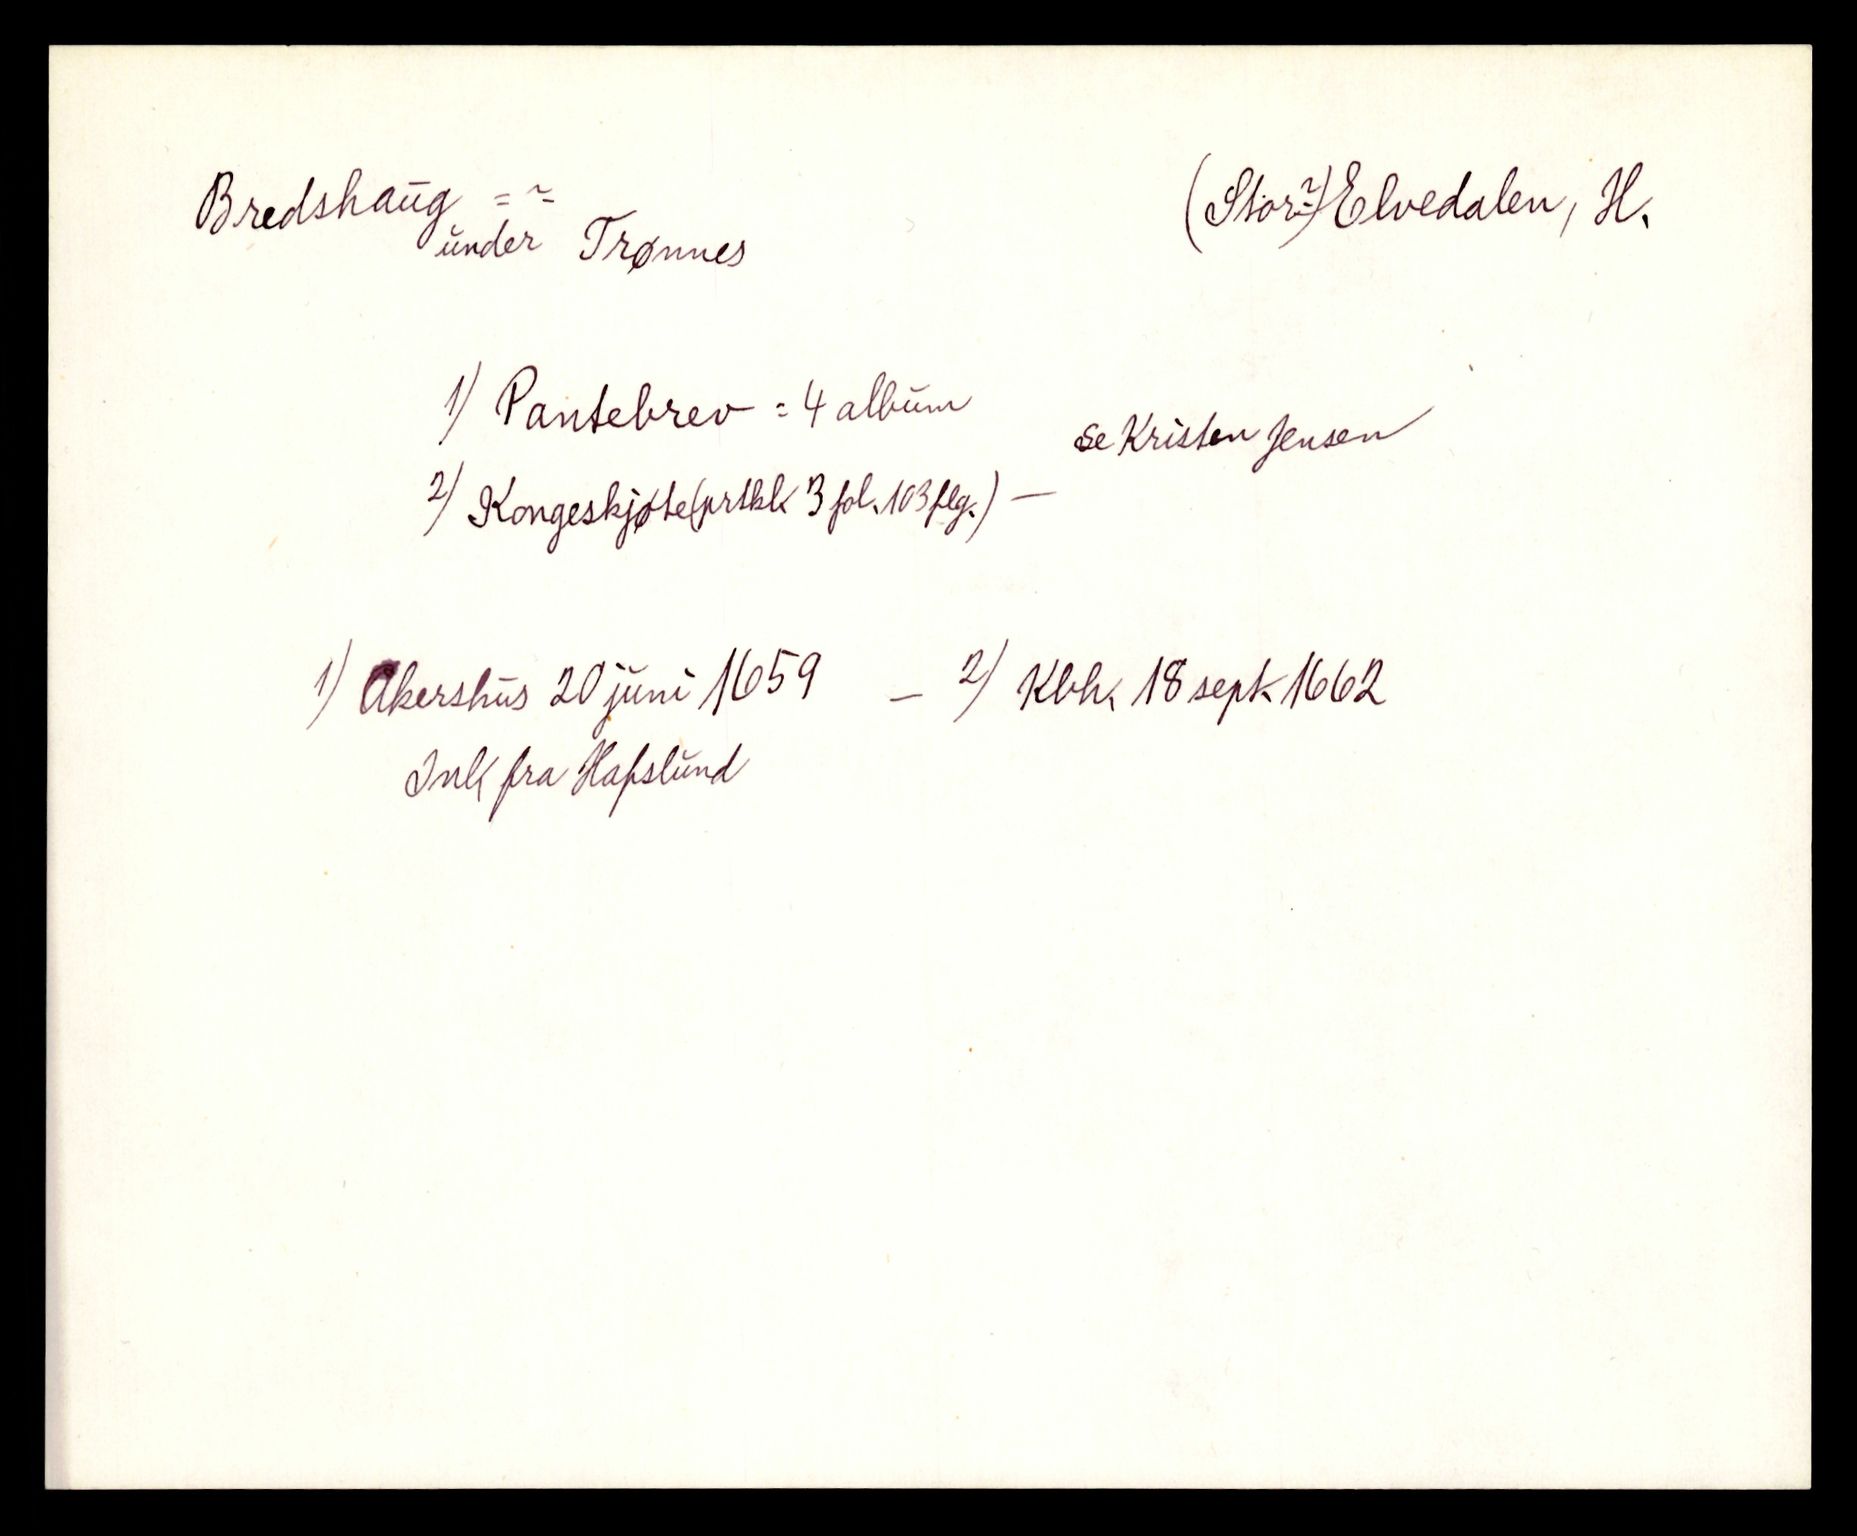 Bredshaug = ~ =
under Trønnes
(Stor-?) Elvedalen, H.
1) Pantebrev = 4 album
2) Kongeskjøte (prtkl. 3 fol. 103 flg.) —
se Kristen Jensen
1) Akershus 20 juni 1659 — 2) Kbh. 18 sept. 1662
Ink fra Hafslund